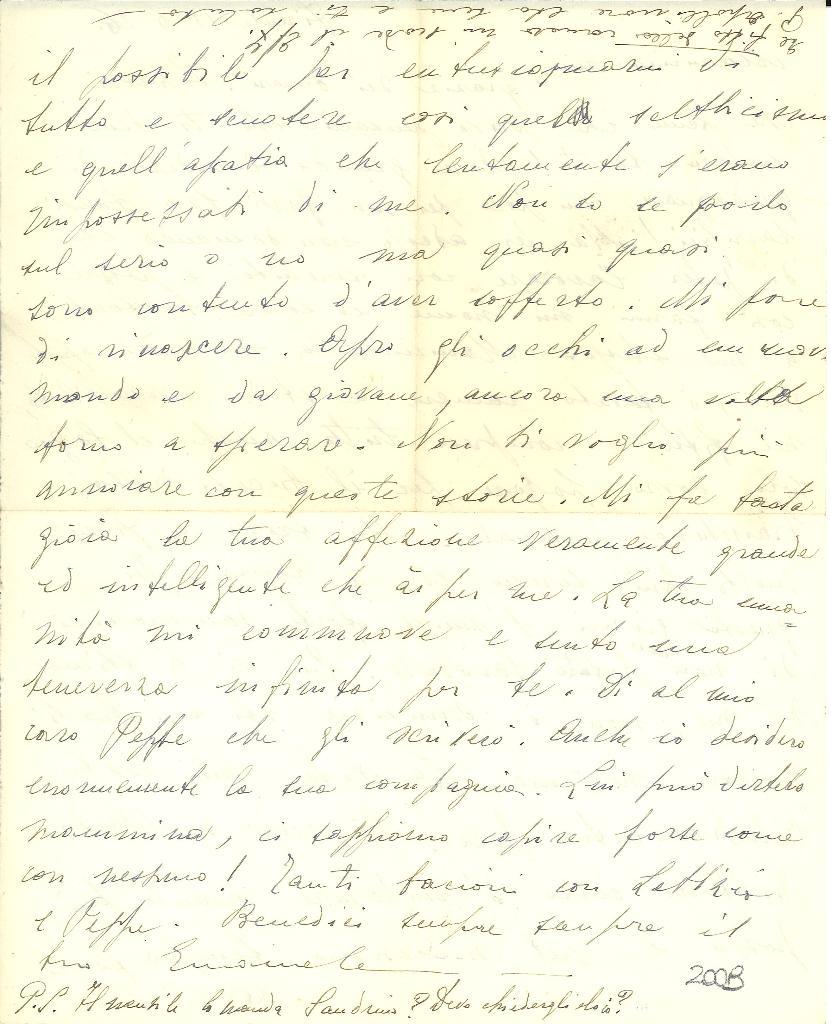 il possibile per entusiasmarmi di
tutto e scuotere così quello scetticismo
e quell'apatia che lentamente s'erano
impossessati di me. Non so se parlo
sul serio o no ma quasi quasi
sono contento d'aver sofferto. Mi pare
di rinascere. Apro gli occhi ad un nuovo
mondo e da giovane, ancora una volta
torno a sperare. Non ti voglio più
annoiare con queste storie. Mi fa tanta
gioia la tua affezione veramente grande
ed intelligente che ài per me. La tua uma=
nità mi commuove e sento una
tenerezza infinita per te. Di al mio
caro Peppe che gli scriverò. Anche io desidero
enormemente la sua compagnia. Lui può dirtelo
mammina, ci sappiamo capire forse come
con nessuno! Tanti bacioni con Letizia
e Peppe. Benedici sempre sempre il
tuo Emanuele
200B
P.S. Il mensile lo manda Sandrino? Devo chiederglielo io?